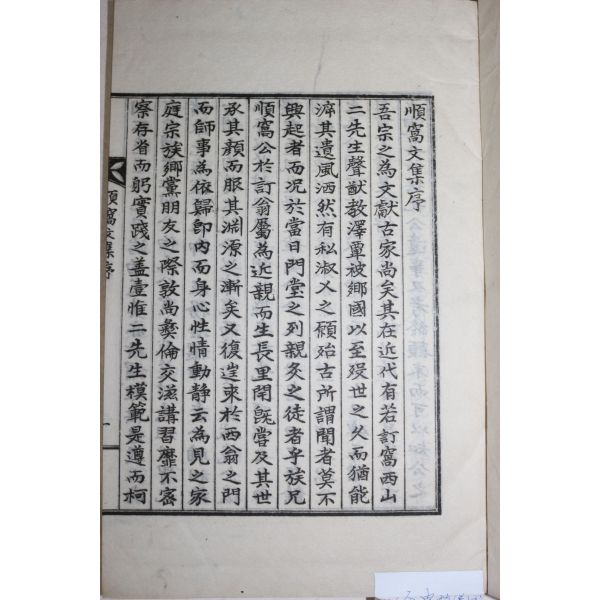 順窩文集序
吾宗之為文獻古家尚矣其在近代有若訂窩西山
二先生聲猷敎澤覃被鄉國以至歿世之久而猶能
淬其遺風洒然有私淑乂之願殆古所謂聞者莫不
興起者而况於當日門堂之列親灸之徒者乎族兄
順窩公於訂翁屬為近親而生長里閈旣甞及其世
承其顏而服其淵源之漸矣又復遑來於西翁之門
而師事為依歸卽內而身心性情動靜云為見之家
庭宗族鄉黨朋友之際敦尚彜倫交滋講習靡不密
察存省而躬實踐之盖壹惟二先生模範是遵而柯
順窩文集序
一